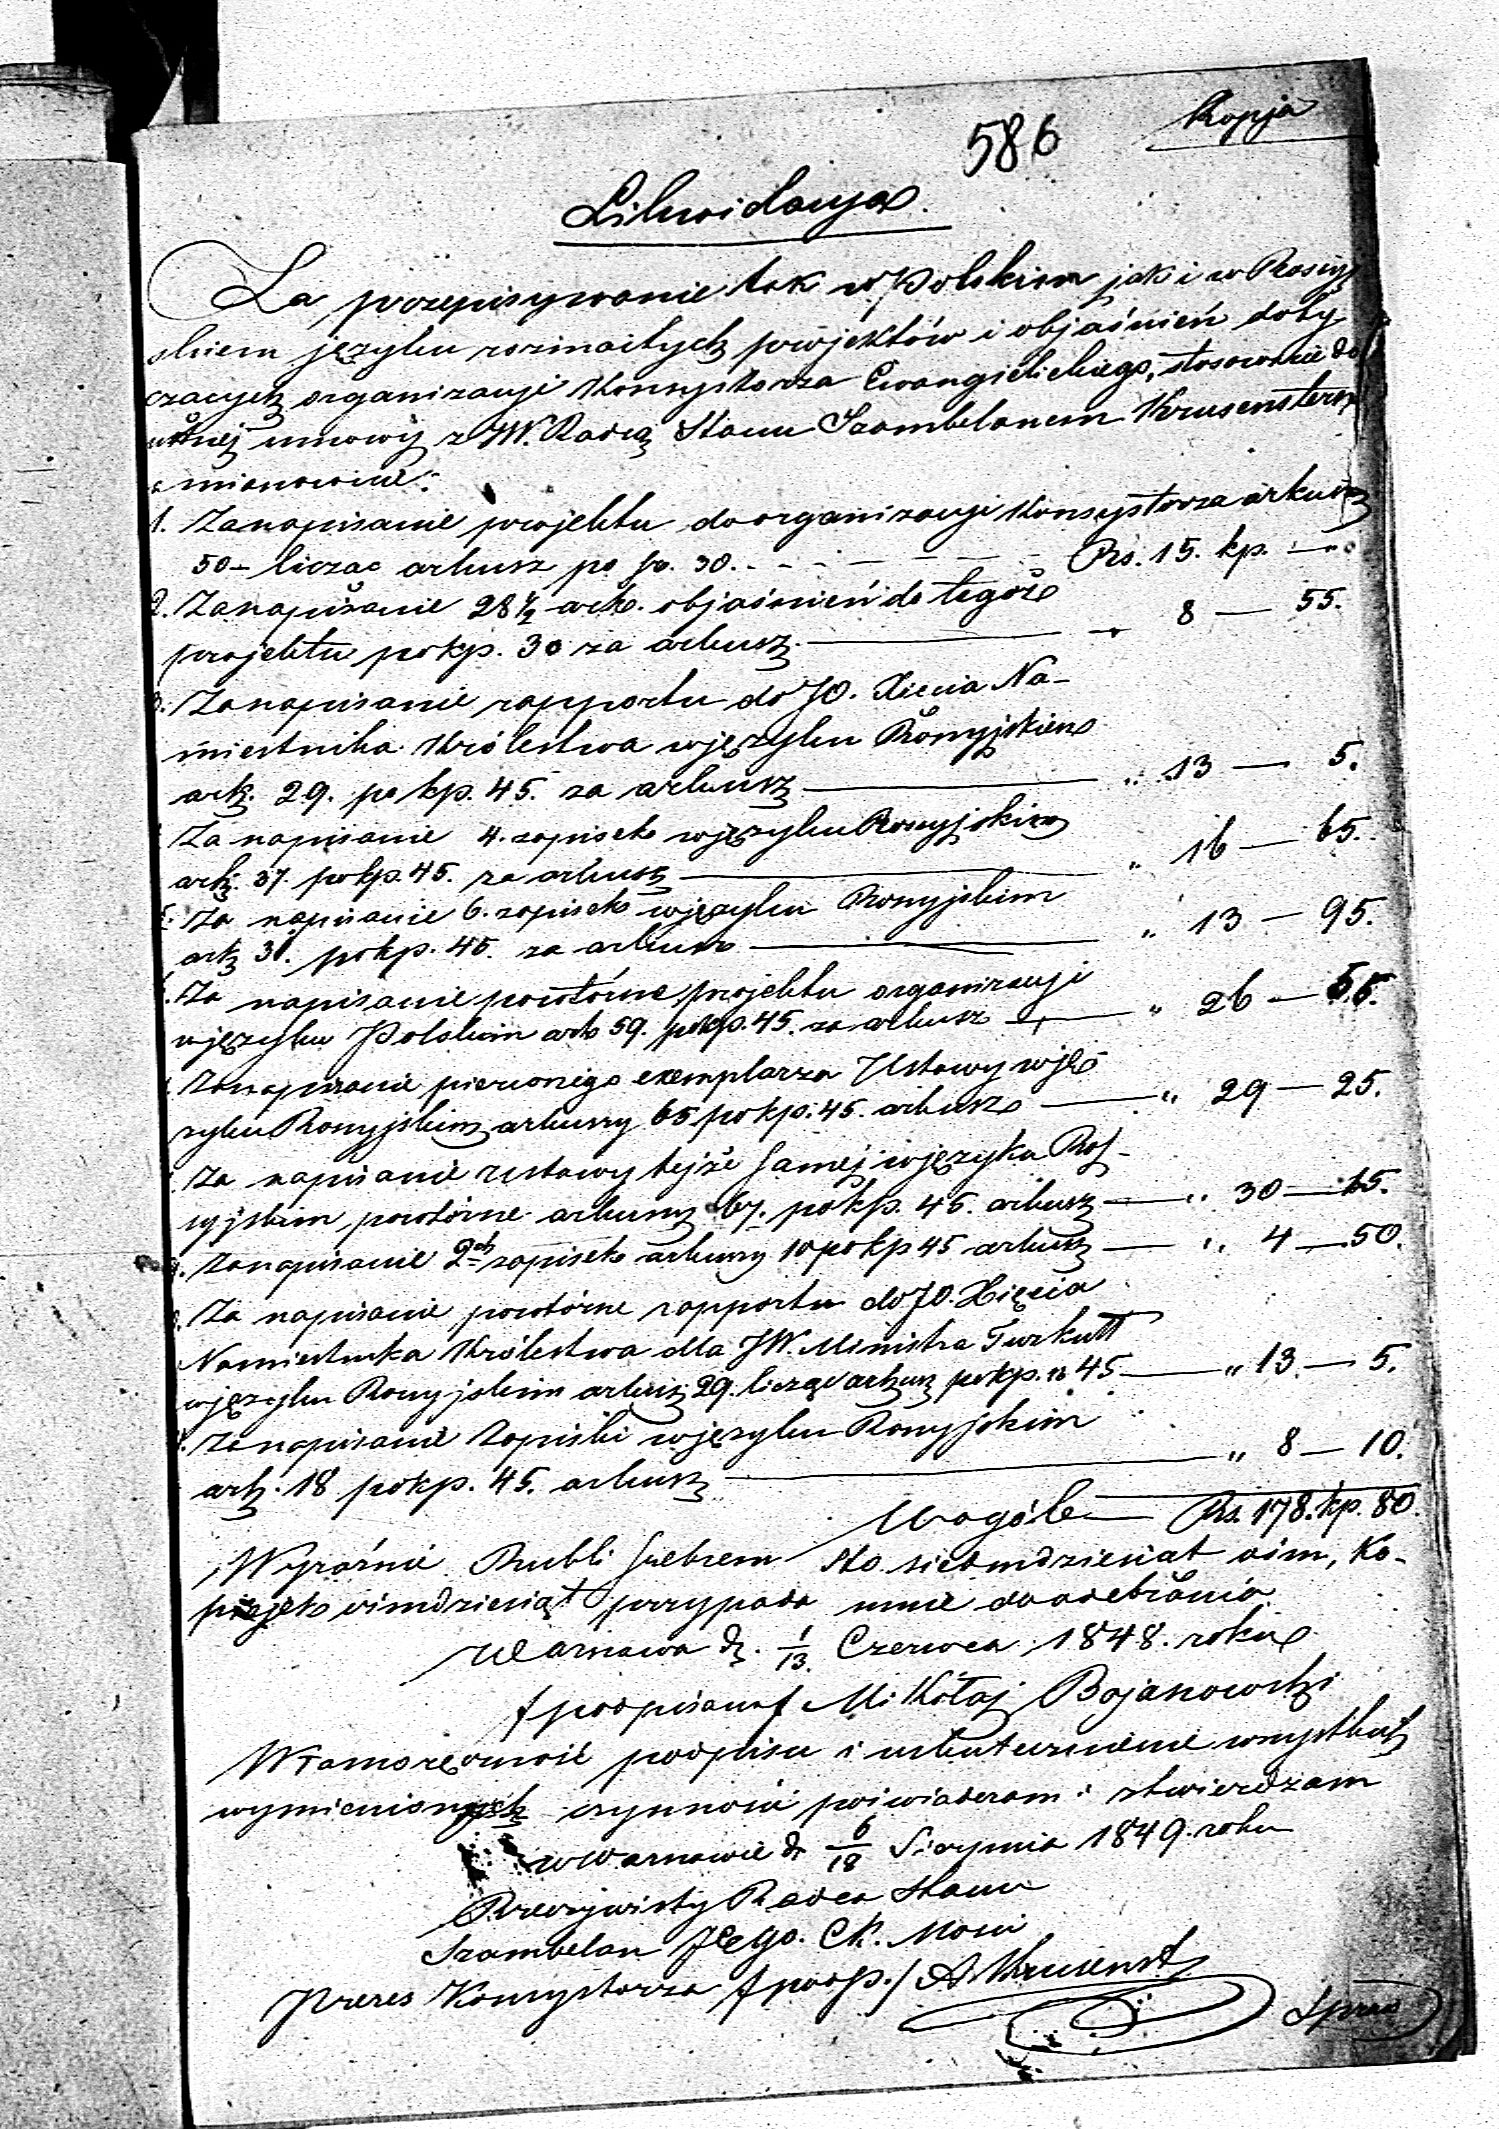 Kopja
586
Likwidacya
Za przepisywanie tak w Polskim jak i w Rossyj
skiem języku rozmaitych projektów i objaśnień doty
czących organizacyi Konsystorza Ewangielickiego, stosownie do
ustnej umowy z JW. Radcą Stanu Szambelanem Krusenstern
a mianowicie:
1. Za napisanie projektu do organizacyi Konsystorza arkuszy
50 – licząc arkusz po kp. 30. - - - - - - Rs. 15. kp. —"
2. Za napisanie 28½ ark. objaśnień do tegoż
projektu po kp. 30 za arkusz. — " 8 — 55.
3. Za napisanie rapportu do JO. Xięcia Na-
miestnika Królestwa w języku Rossyjskiem
ark. 29. po kp. 45. za arkusz — " 13 — 5.
Za napisanie 4. zapisek w języku Rossyjskim
ark. 37. po kp. 45. za arkusz — " 16 — 65.
5. Za napisanie 6. zapisek w języku Rossyjskim
ark. 31. po kp. 45. za arkusz — " 13 — 95.
Za napisanie powtórne projektu organizacyi
w języku Polskim ark 59. po kp. 45. za arkusz — " 26 — 55.
Za napisanie pierwszego exemplarza Ustawy w ję-
zyku Rossyjskim arkuszy 65 po kp. 45. arkusz — " 29 — 25.
Za napisanie ustawy tejże samej w języku Ros-
syjskim powtórne arkuszy 67. po kp. 45. arkusz — " 30 — 15.
9. Za napisanie 2ch zapisek arkuszy 10 po kp 45 arkusz — " 4 — 50.
Za napisanie powtórne rapportu do JO. Xięcia
Namiestnika Królestwa dla JW. Ministra Turkułł
w języku Rossyjskim arkuszy 29. licząc arkusz po kp. 45 — " 13. — 5.
Za napisanie zapiski w języku Rossyjskim
ark. 18 po kp. 45. arkusz — " 8 — 10.
Wogóle — Rs. 178. kp. 80.
Wyraźnie Rubli Srebrem Sto siedmdziesiąt ośm, Ko-
piejek ośmdziesiąt przypada mnie do odebrania.
Warszawa d. 1/13. Czerwca 1848. roku
/podpisano/ Mikołaj Bojanowski
Własnoręczność podpisu i uskutecznienie wszystkich
wymienionych czynności poświadczam i stwierdzam
w Warszawie d 6/18 Sierpnia 1849. roku
Rzeczywisty Radca Stanu
Szambelan Jego. CK. Mości
Prezes Konsystorza /podp./ A Krusenst